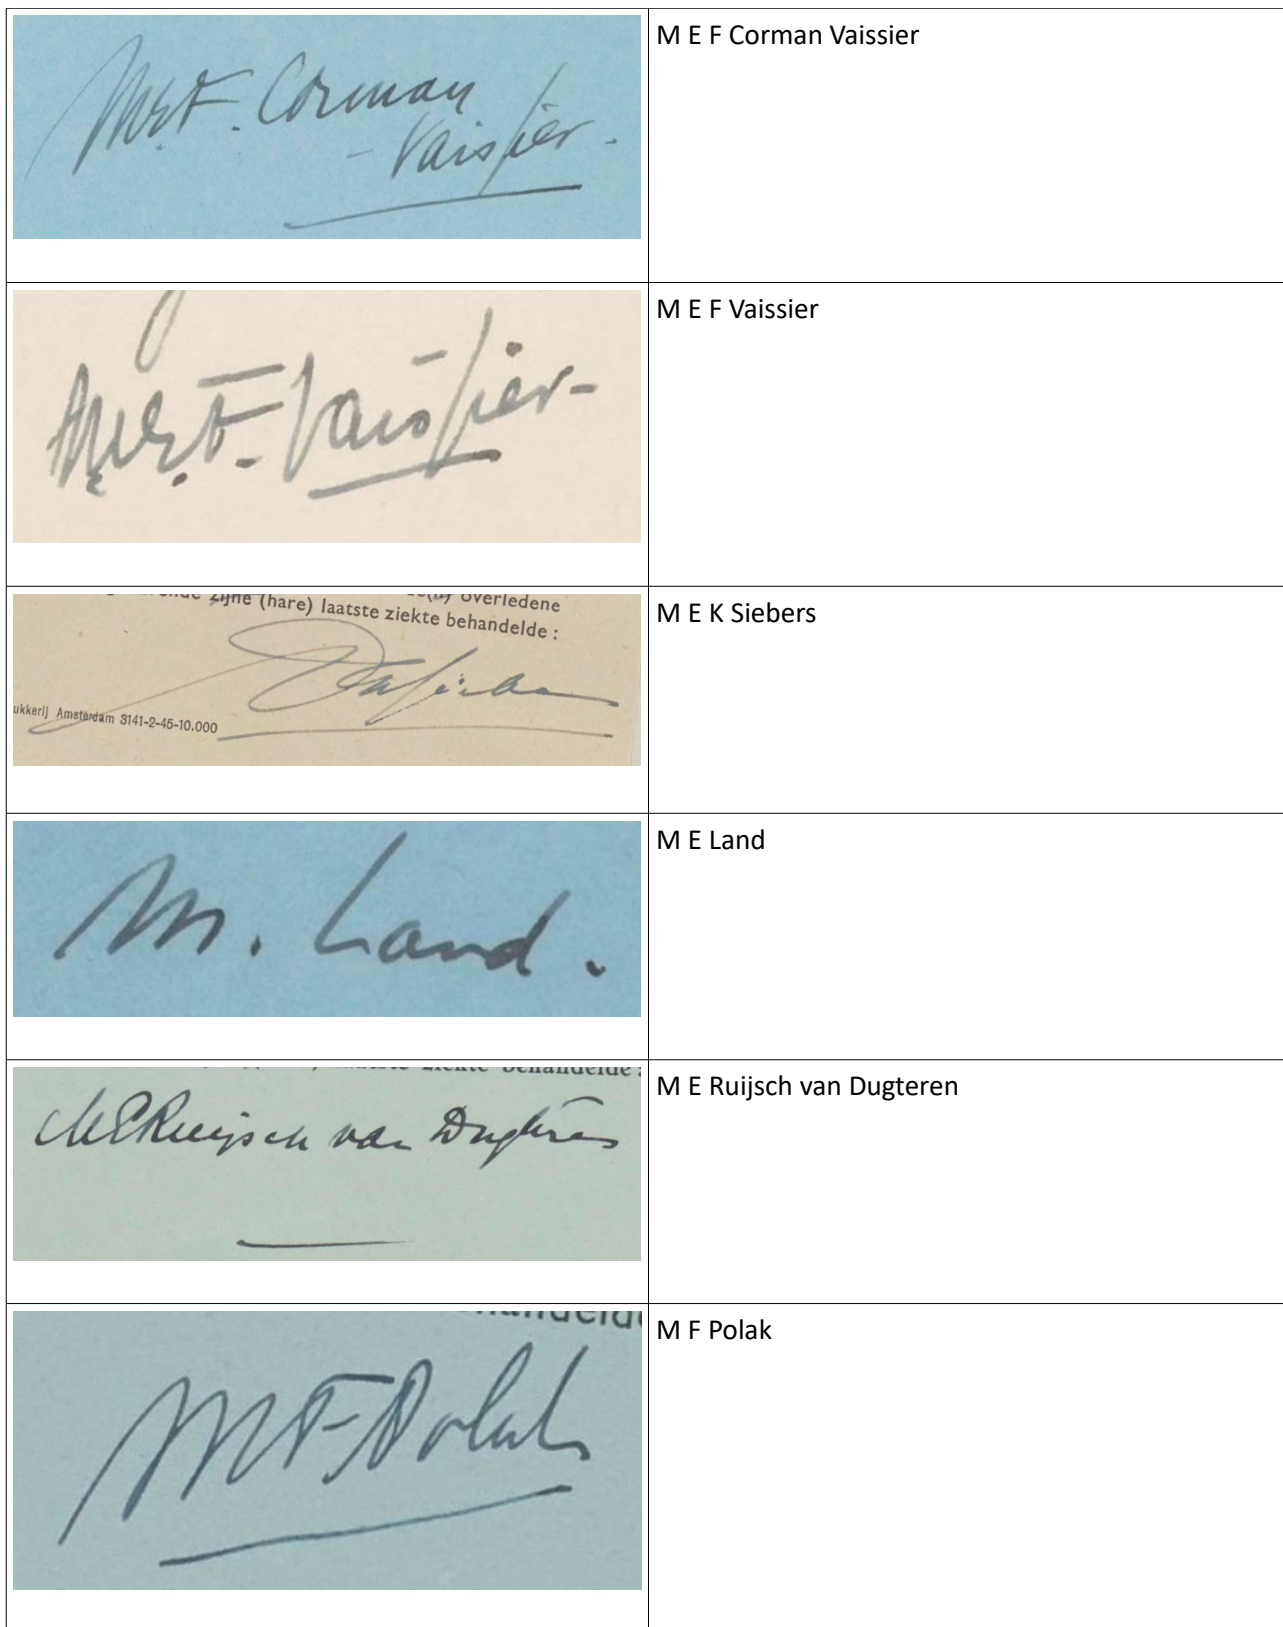 M.E.F. Corman
- Vaissier.
M E F Corman Vaissier
M.E.F. Vaissier-
M E F Vaissier
zijne (hare) laatste ziekte behandelde :
overledene
ukkerij Amsterdam 3141-2-45-10.000
M E K Siebers
M. Land.
M E Land
laatste ziekte behandelde:
M E Ruijsch van Dugteren
M E Ruijsch van Dugteren
M F Polak
M F Polak